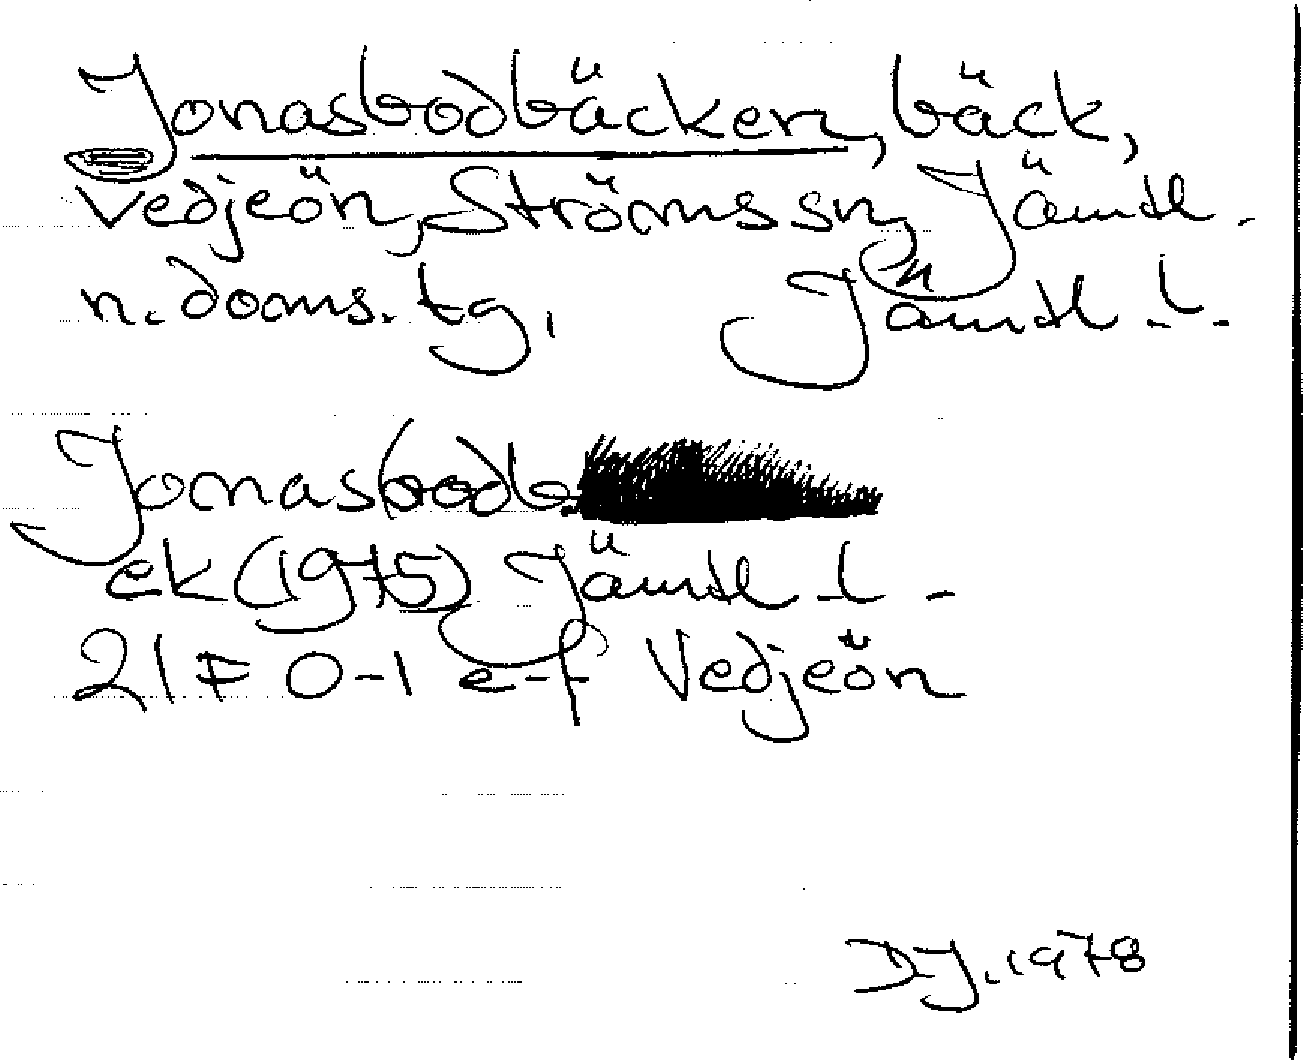 Jonasbodbäcken, bäck,
Vedjeön, Ströms sn, Jämtl.
n. doms. tg, Jämtl. l.
Jonasbodb
ek (1975) Jämtl. l.
21 F 0-1 e-f Vedjeön
D.J. 1978